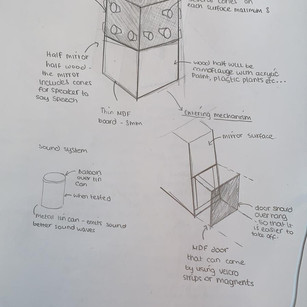 cones on
each surface maximum 8
Half mirror
half wood -
the mirror
includes cones
for speaker to
say speech
wood half will be
camouflage with acrylic
paint, plastic plants etc...
Thin MDF
board - 3mm
Entering mechanism
mirror surface
Sound system
baloon
over tin
can
when tested
metal tin can - emits sound
better sound waves
door should
over hang
- so that is
is easier to
take off.
MDF door
that can come
by using velcro
strips or magnents